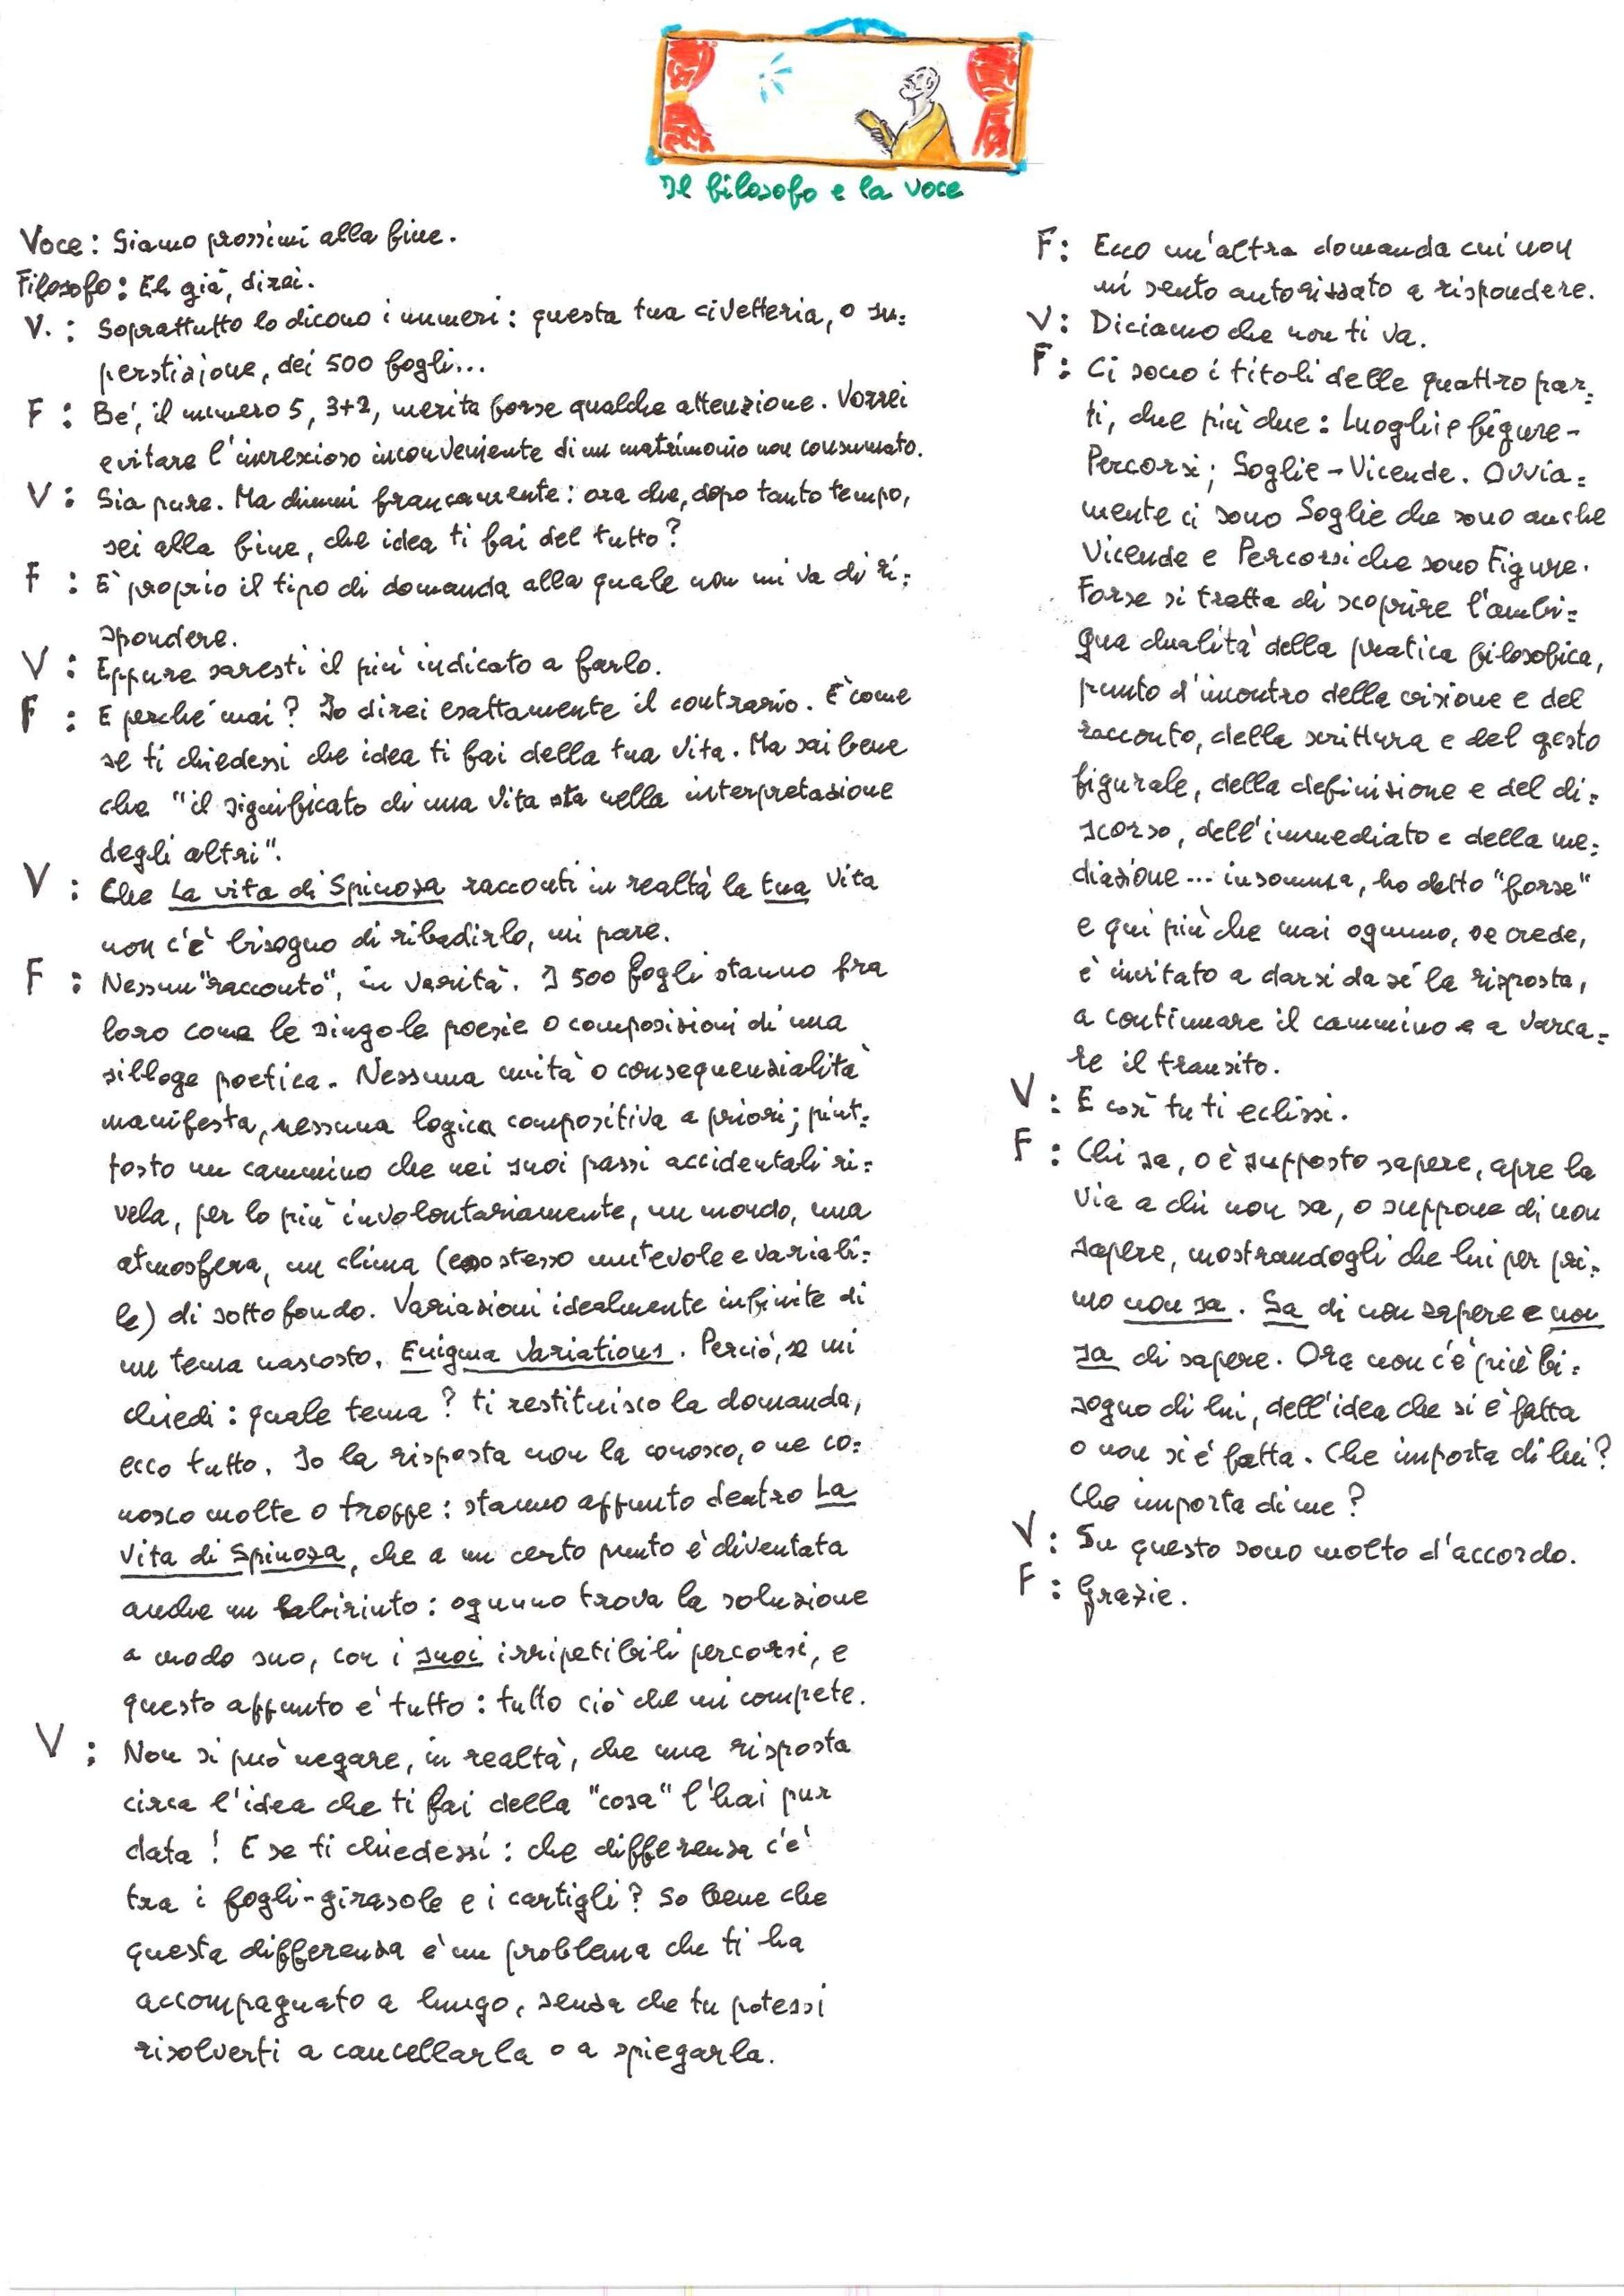 Il filosofo e la voce
Voce: Siamo prossimi alla fine.
Filosofo: Eh già, direi.
V.: Soprattutto lo dicono i numeri: questa tua civetteria, o su=
perstizione, dei 500 fogli...
F: Be', il numero 5, 3+2, merita forse qualche attenzione. Vorrei
evitare l'increscioso inconveniente di un matrimonio non consumato.
V: Sia pure. Ma dimmi francamente: ora che, dopo tanto tempo,
sei alla fine, che idea ti fai del tutto?
F: È proprio il tipo di domanda alla quale non mi va di ri=
spondere.
V: Eppure saresti il più indicato a farlo.
F: E perché mai? Io direi esattamente il contrario. È come
se ti chiedessi che idea ti fai della tua vita. Ma sai bene
che "il significato di una vita sta nella interpretazione
degli altri".
V: Che La vita di Spinoza racconti in realtà la tua vita
non c'è bisogno di ribadirlo, mi pare.
F: Nessun "racconto", in verità. I 500 fogli stanno fra
loro come le singole poesie o composizioni di una
silloge poetica. Nessuna unità o consequenzialità
manifesta, nessuna logica compositiva a priori; piut=
tosto un cammino che nei suoi passi accidentali ri=
vela, per lo più involontariamente, un mondo, una
atmosfera, un clima (esso stesso mutevole e variabi=
le) di sottofondo. Variazioni idealmente infinite di
un tema nascosto. Enigma Variations. Perciò, se mi
chiedi: quale tema? ti restituisco la domanda,
ecco tutto. Io la risposta non la conosco, o ne co=
nosco molte o troppe: stanno appunto dentro La
Vita di Spinoza, che a un certo punto è diventata
anche un labirinto: ognuno trova la soluzione
a modo suo, con i suoi irripetibili percorsi, e
questo appunto è tutto: tutto ciò che mi compete.
V: Non si può negare, in realtà, che una risposta
circa l'idea che ti fai della "cosa" l'hai pur
data! E se ti chiedessi: che differenza c'è
tra i fogli-girasole e i cartigli? So bene che
questa differenza è un problema che ti ha
accompagnato a lungo, senza che tu potessi
risolverti a cancellarla o a spiegarla.
F: Ecco un'altra domanda cui non
mi sento autorizzato a rispondere.
V: Diciamo che non ti va.
F: Ci sono i titoli delle quattro par=
ti, due più due: Luoghi e figure-
Percorsi; Soglie-Vicende. Ovvia=
mente ci sono Soglie che sono anche
Vicende e Percorsi che sono Figure.
Forse si tratta di scoprire l'ambi=
gua dualità della pratica filosofica,
punto d'incontro della visione e del
racconto, della scrittura e del gesto
figurale, della definizione e del di=
scorso, dell'immediato e della me=
diazione... insomma, ho detto "forse"
e qui più che mai ognuno, se crede,
è invitato a darsi da sé la risposta,
a continuare il cammino e a varca=
re il transito.
V: E così tu ti eclissi.
F: Chi sa, o è supposto sapere, apre la
via a chi non sa, o suppone di non
sapere, mostrandogli che lui per pri=
mo non sa. Sa di non sapere e non
sa di sapere. Ora non c'è più bi=
sogno di lui, dell'idea che si è fatta
o non si è fatta. Che importa di lui?
Che importa di me?
V: Su questo sono molto d'accordo.
F: Grazie.